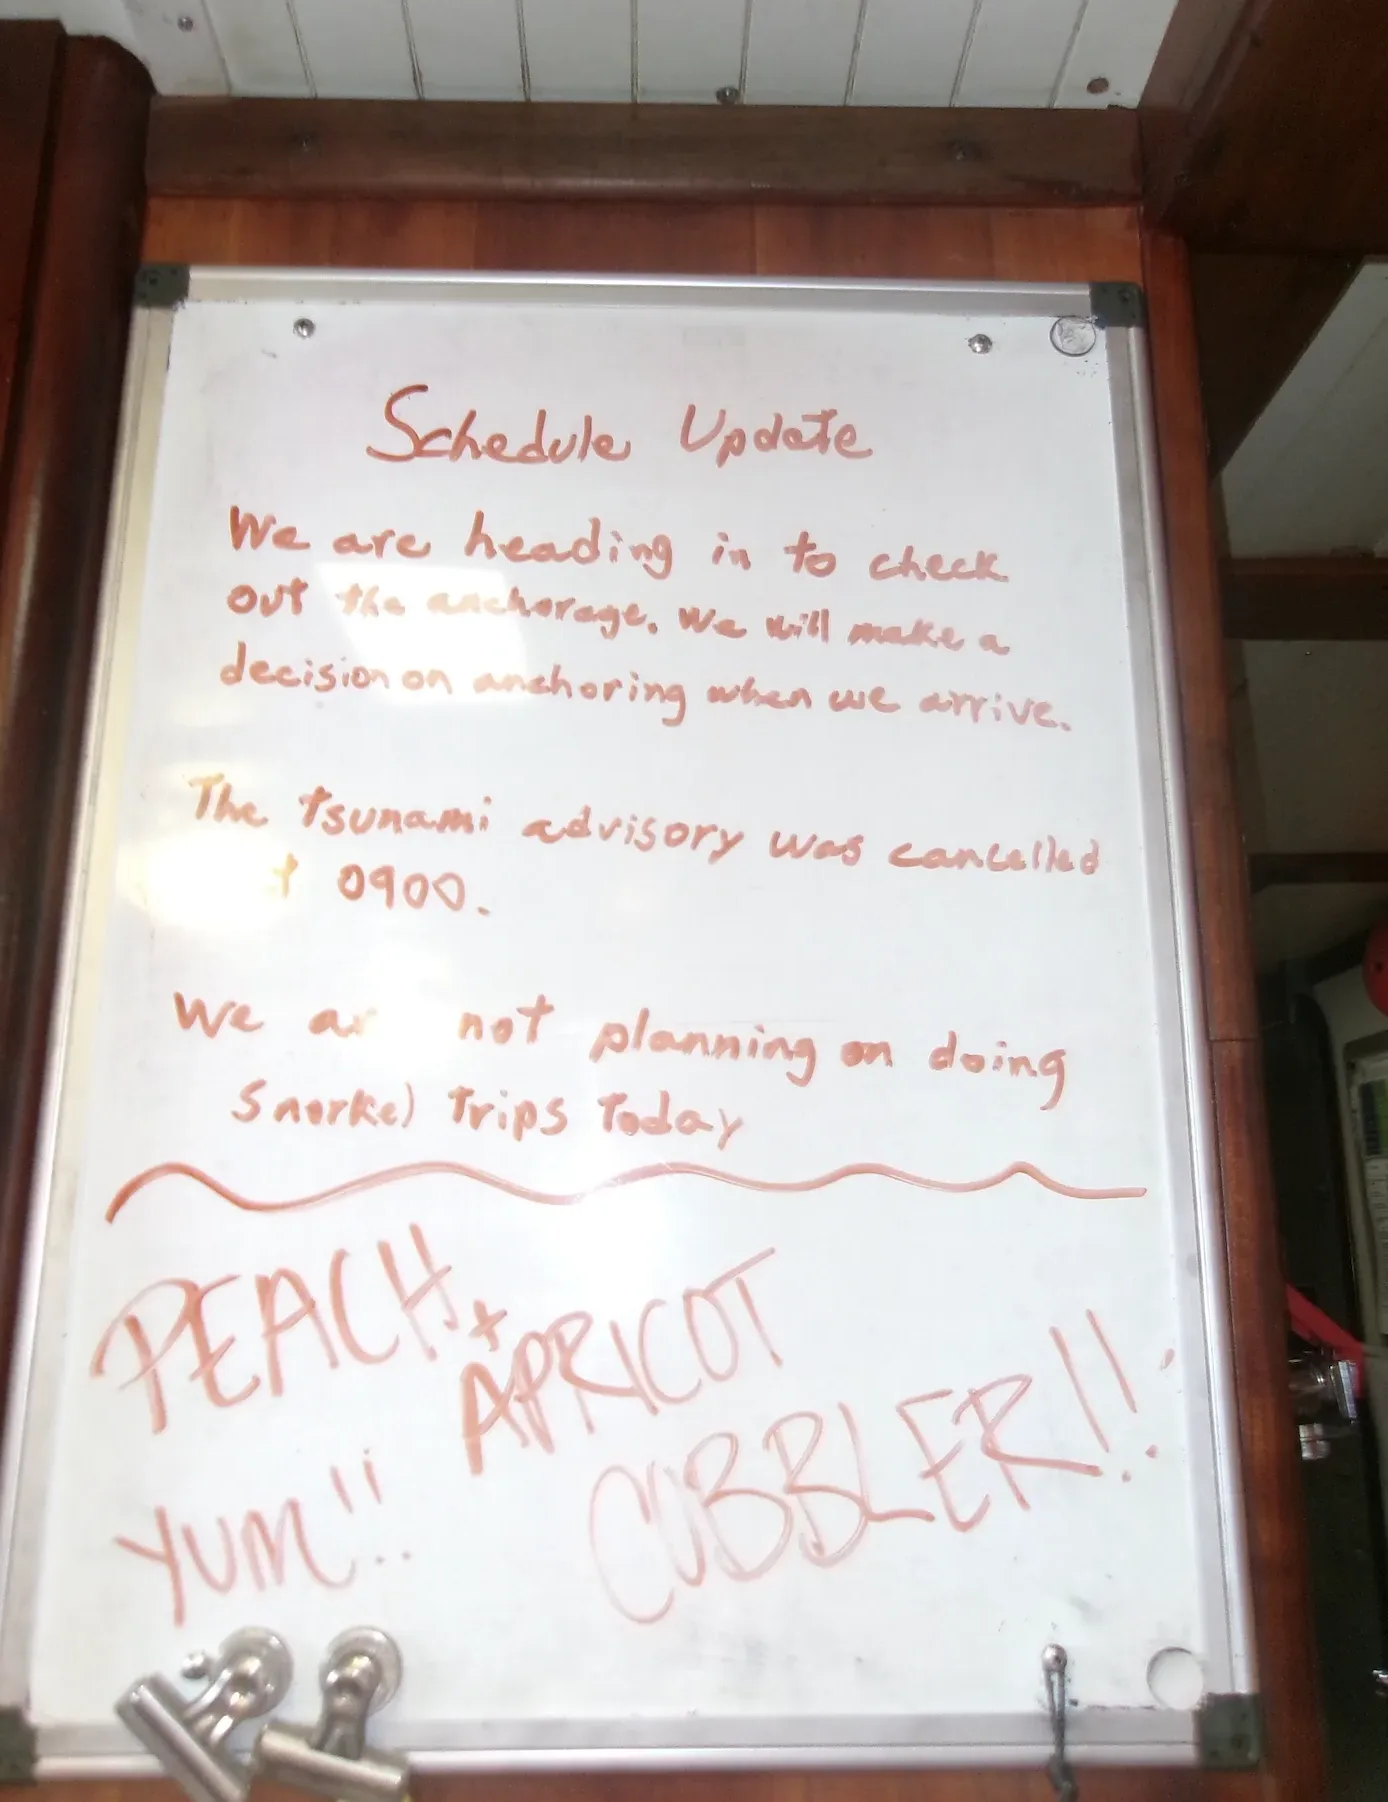 Schedule Update
We are heading in to check
out the anchorage. We will make a
decision on anchoring when we arrive.
The tsunami advisory was cancelled
0900.
We not planning on doing
Snorkel trips today
PEACH +
APRICOT
COBBLER!!
YUM!!